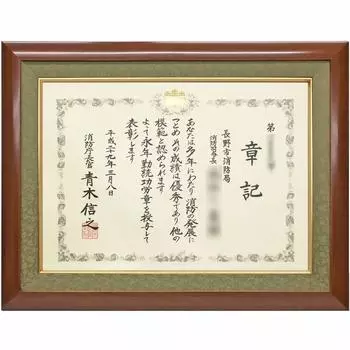 第
章記
長野市消防局
消防司令長
あなたは多年にわたり消防の発展に
つとめ その成績は優秀であり他の
模範と認められます
よって永年勤続功労章を授与して
表彰します
平成二十九年三月八日
消防庁長官 青木信之